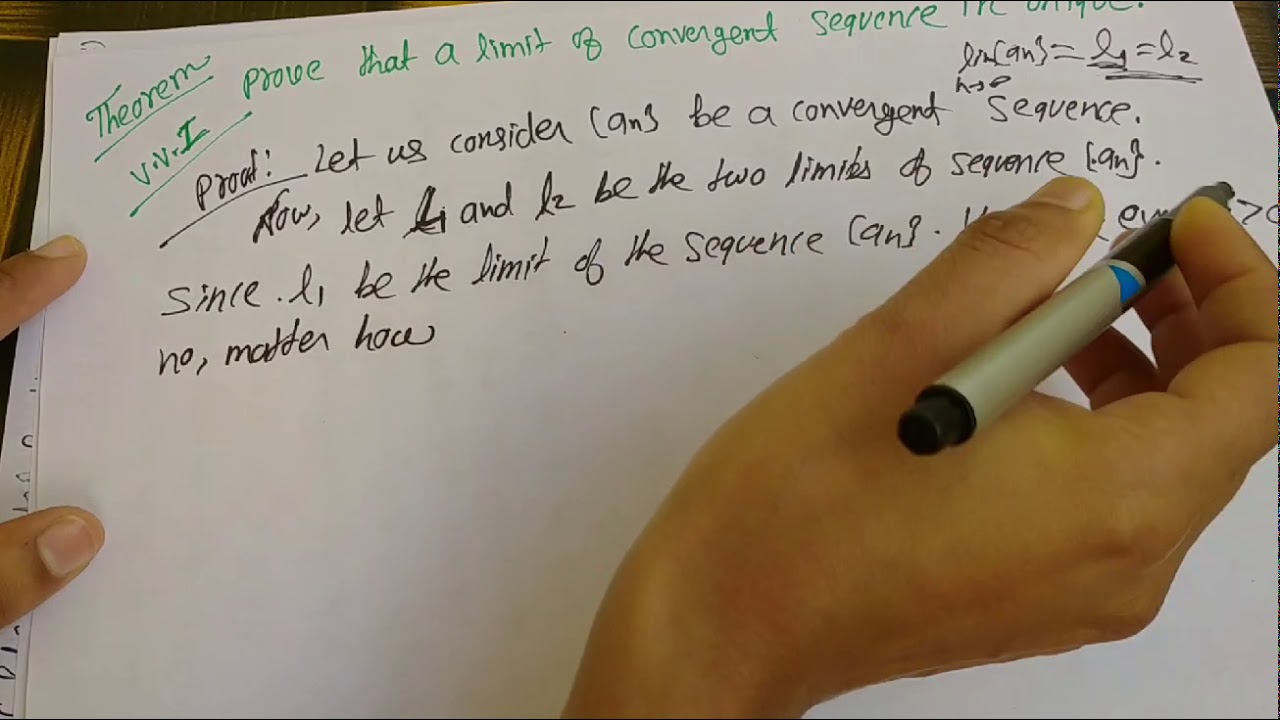 Theorem prove that a limit of convergent sequence is unique.
lim {an} = l1 = l2
n→∞
V.V.I
Proof: Let us consider {an} be a convergent sequence.
Now, let l1 and l2 be the two limits of sequence {an}.
Since. l1 be the limit of the sequence {an}. >0
no, matter how